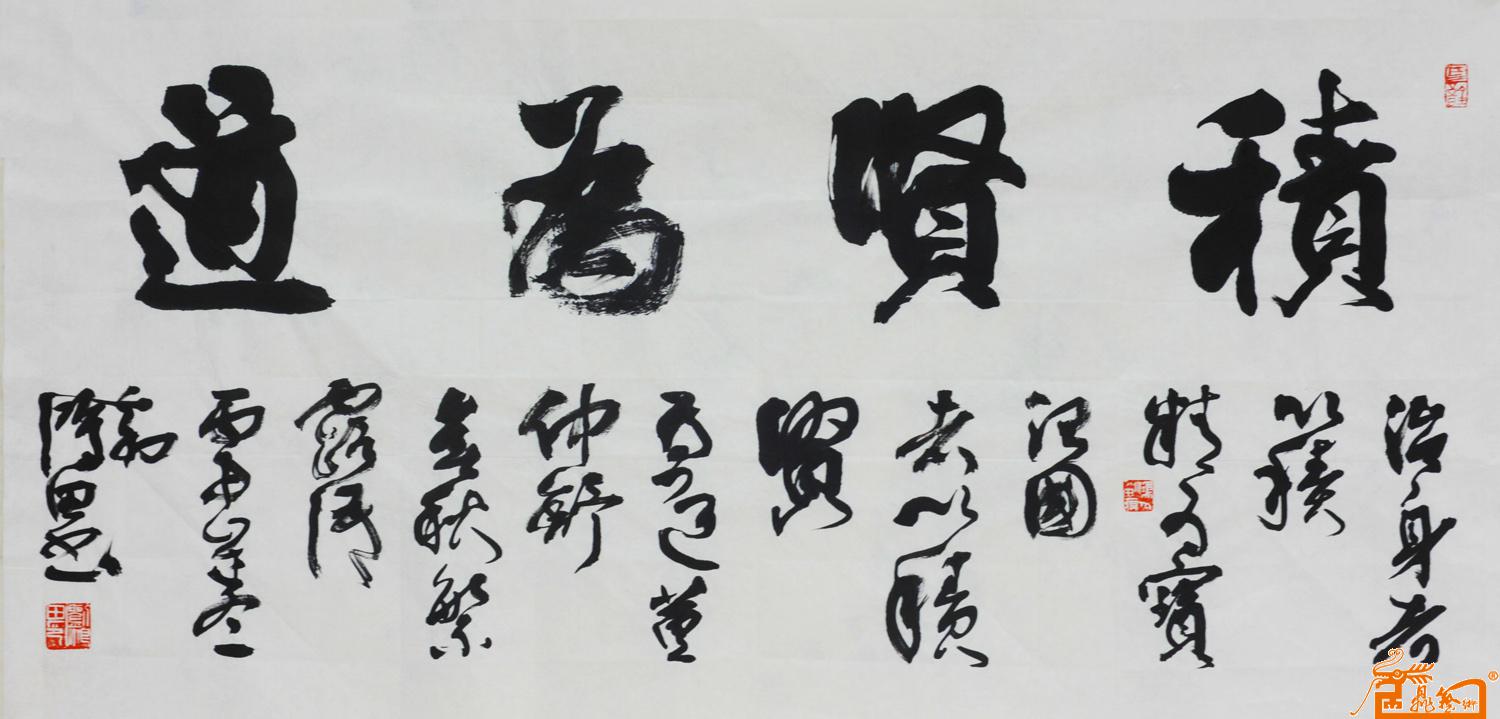 積賢為道
治身者
以積
精為寶
治國
者以積
賢
為道董
仲舒
春秋繁
露語
丙申歲冬
劉
鴻田書